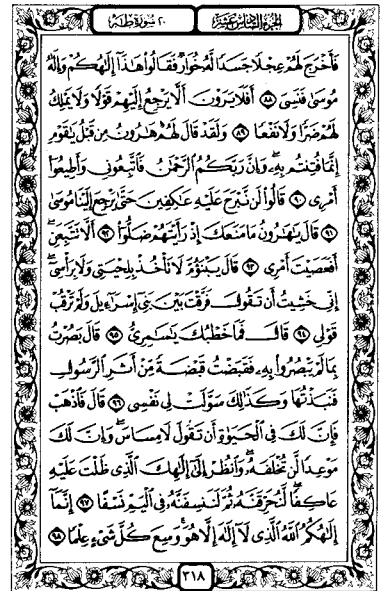 الجزء السادس عشر
٢٠ سورة طه
فَأَخْرَجَ لَهُمْ عِجْلًا جَسَدًا لَّهُۥ خُوَارٌ فَقَالُوا۟ هَٰذَآ إِلَٰهُكُمْ وَإِلَٰهُ
مُوسَىٰ فَنَسِىَ ٨٨ أَفَلَا يَرَوْنَ أَلَّا يَرْجِعُ إِلَيْهِمْ قَوْلًا وَلَا يَمْلِكُ
لَهُمْ ضَرًّا وَلَا نَفْعًا ٨٩ وَلَقَدْ قَالَ لَهُمْ هَٰرُونُ مِن قَبْلُ يَٰقَوْمِ
إِنَّمَا فُتِنتُم بِهِۦ ۖ وَإِنَّ رَبَّكُمُ ٱلرَّحْمَٰنُ فَٱتَّبِعُونِى وَأَطِيعُوٓا۟
أَمْرِى ٩٠ قَالُوا۟ لَن نَّبْرَحَ عَلَيْهِ عَٰكِفِينَ حَتَّىٰ يَرْجِعَ إِلَيْنَا مُوسَىٰ
٩١ قَالَ يَٰهَٰرُونُ مَا مَنَعَكَ إِذْ رَأَيْتَهُمْ ضَلُّوٓا۟ ٩٢ أَلَّا تَتَّبِعَنِ ۖ
أَفَعَصَيْتَ أَمْرِى ٩٣ قَالَ يَبْنَؤُمَّ لَا تَأْخُذْ بِلِحْيَتِى وَلَا بِرَأْسِىٓ ۖ
إِنِّى خَشِيتُ أَن تَقُولَ فَرَّقْتَ بَيْنَ بَنِىٓ إِسْرَٰٓءِيلَ وَلَمْ تَرْقُبْ
قَوْلِى ٩٤ قَالَ فَمَا خَطْبُكَ يَٰسَٰمِرِىُّ ٩٥ قَالَ بَصُرْتُ
بِمَا لَمْ يَبْصُرُوا۟ بِهِۦ فَقَبَضْتُ قَبْضَةً مِّنْ أَثَرِ ٱلرَّسُولِ
فَنَبَذْتُهَا وَكَذَٰلِكَ سَوَّلَتْ لِى نَفْسِى ٩٦ قَالَ فَٱذْهَبْ
فَإِنَّ لَكَ فِى ٱلْحَيَوٰةِ أَن تَقُولَ لَا مِسَاسَ ۖ وَإِنَّ لَكَ
مَوْعِدًا لَّن تُخْلَفَهُۥ ۖ وَٱنظُرْ إِلَىٰٓ إِلَٰهِكَ ٱلَّذِى ظَلْتَ عَلَيْهِ
عَاكِفًا ۖ لَّنُحَرِّقَنَّهُۥ ثُمَّ لَنَنسِفَنَّهُۥ فِى ٱلْيَمِّ نَسْفًا ٩٧ إِنَّمَآ
إِلَٰهُكُمُ ٱللَّهُ ٱلَّذِى لَآ إِلَٰهَ إِلَّا هُوَ ۚ وَسِعَ كُلَّ شَىْءٍ عِلْمًا ٩٨
٣١٨